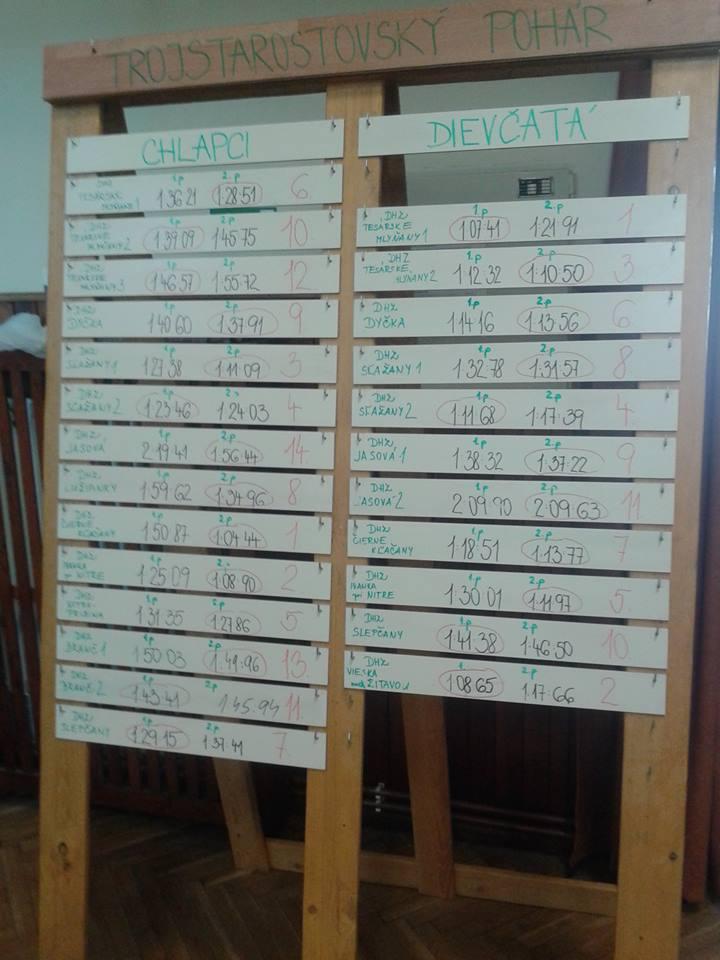 TROJSTAROSTOVSKÝ POHÁR
CHLAPCI
1.p 2.p
DHZ TESÁRSKE MLYŇANY 1 1:36:21 1:28:51 6.
1.p 2.p
DHZ TESÁRSKE MLYŇANY 2 1:39:09 1:45:75 10.
1.p 2.p
DHZ TESÁRSKE MLYŇANY 3 1:46:57 1:55:72 12.
1.p 2.p
DHZ DYČKA 1:40:60 1:37:91 9
1.p 2.p
DHZ SĽAŽANY 1 1:27:38 1:11:09 3
1.p 2.p
DHZ SĽAŽANY 2 1:23:46 1:24:03 4
1.p 2.p
DHZ JASOVÁ 2:19:41 1:56:44 14.
1.p 2.p
DHZ LUŽIANKY 1:59:62 1:34:96 8
1.p 2.p
DHZ ČIERNE KĽAČANY 1:50:87 1:04:44 1
1.p 2.p
DHZ IVANKA pri NITRE 1:25:09 1:08:90 2
1.p 2.p
DHZ NITRA 1:31:35 1:27:86 5
1.p 2.p
DHZ BRANČ 1 1:50:03 1:41:96 13.
1.p 2.p
DHZ BRANČ 2 1:43:41 1:45:94 11.
1.p 2.p
DHZ SLEPČANY 1:29:15 1:37:41 7.
DIEVČATÁ
1.p 2.p
DHZ TESÁRSKE MLYŇANY 1 1:07:41 1:21:91 1
1.p 2.p
DHZ TESÁRSKE MLYŇANY 2 1:12:32 1:10:50 3
1.p 2.p
DHZ DYČKA 1:14:16 1:13:56 6
1.p 2.p
DHZ SĽAŽANY 1 1:32:78 1:31:57 8
1.p 2.p
DHZ SĽAŽANY 2 1:11:68 1:17:39 4.
1.p 2.p
DHZ JASOVÁ 1 1:38:32 1:37:22 9
1.p 2.p
DHZ JASOVÁ 2 2:09:90 2:09:63 11
1.p 2.p
DHZ ČIERNE KĽAČANY 1:18:51 1:13:77 7
1.p 2.p
DHZ IVANKA pri NITRE 1:30:01 1:11:97 5.
1.p 2.p
DHZ SLEPČANY 1:41:38 1:46:50 10
1. 2.p
DHZ VIESKA nad ŽITAVOU 1:08:65 1:17:66 2